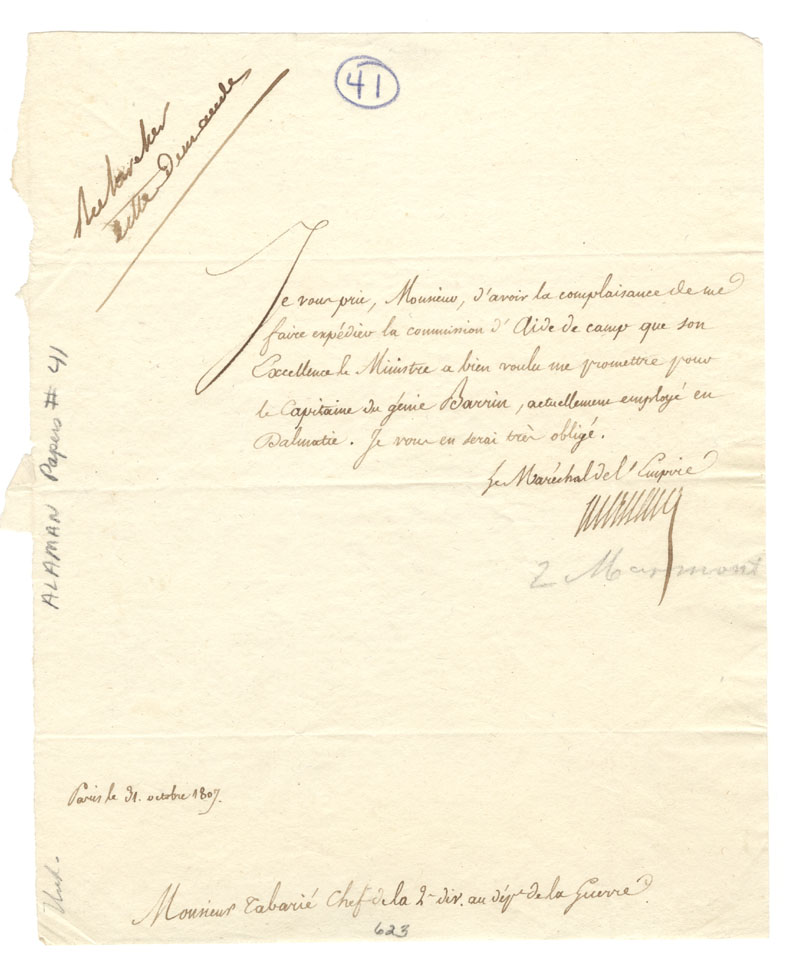 41
Rechercher
cette demande
Je vous prie, Monsieur, d'avoir la complaisance de me
faire expédier la commission d'Aide de camp que son
Excellence le Ministre a bien voulu me promettre pour
le Capitaine du génie Barrin, actuellement employé en
Dalmatie. Je vous en serai très obligé.
Le Maréchal de l'Empire
Marmont
ALAMAN Papers # 41
Paris le 31. octobre 1807.
Monsieur Tabarié Chef de la 2e div. au dépt de la Guerre
623